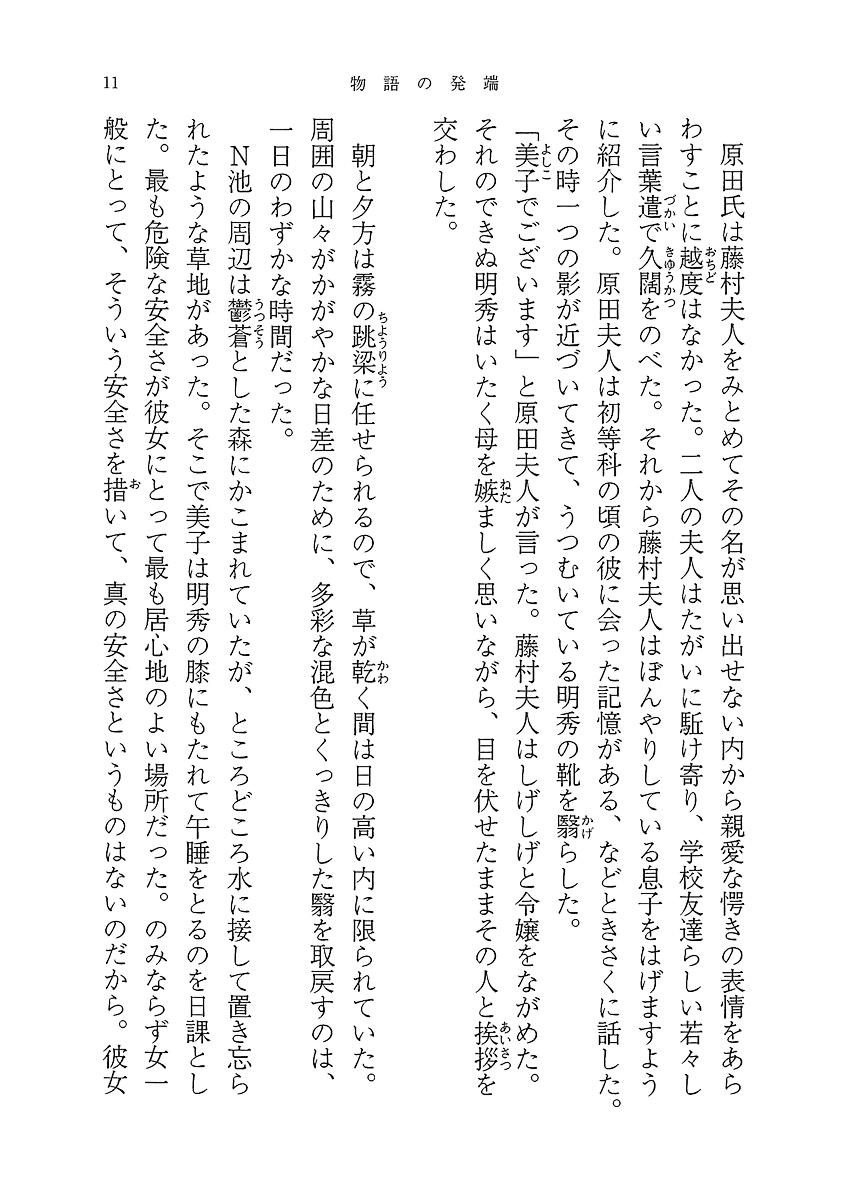 11
物語の発端
　原田氏は藤村夫人をみとめてその名が思い出せない内から親愛な愕きの表情をあら
わすことに越度はなかった。二人の夫人はたがいに駈け寄り、学校友達らしい若々し
い言葉遣で久闊をのべた。それから藤村夫人はぼんやりしている息子をはげますよう
に紹介した。原田夫人は初等科の頃の彼に会った記憶がある、などときさくに話した。
その時一つの影が近づいてきて、うつむいている明秀の靴を翳らした。
「美子でございます」と原田夫人が言った。藤村夫人はしげしげと令嬢をながめた。
それのできぬ明秀はいたく母を嫉ましく思いながら、目を伏せたままその人と挨拶を
交わした。
　朝と夕方は霧の跳梁に任せられるので、草が乾く間は日の高い内に限られていた。
周囲の山々がかがやかな日差のために、多彩な混色とくっきりした翳を取戻すのは、
一日のわずかな時間だった。
　Ｎ池の周辺は鬱蒼とした森にかこまれていたが、ところどころ水に接して置き忘ら
れたような草地があった。そこで美子は明秀の膝にもたれて午睡をとるのを日課とし
た。最も危険な安全さが彼女にとって最も居心地のよい場所だった。のみならず女一
般にとって、そういう安全さを措いて、真の安全さというものはないのだから。彼女